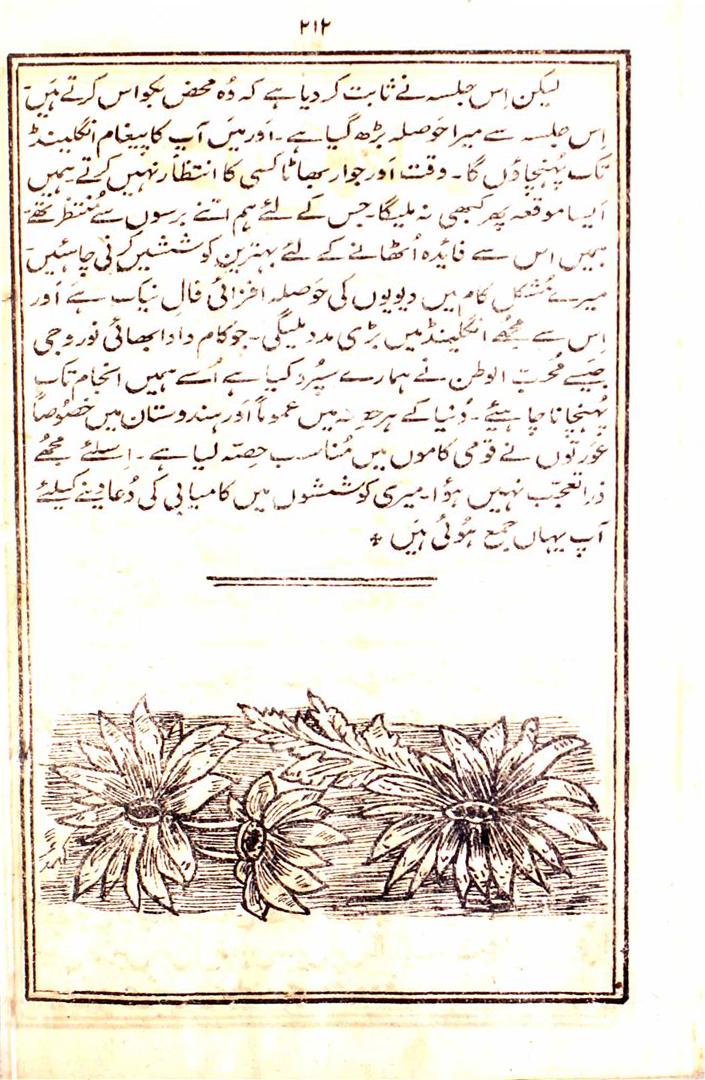 ۲۱۲
لیکن اِس جلسہ نے ثابت کر دیا ہے کہ وُہ محض بکواس کرتے ہَیں۔
اِس جلسہ سے میرا حَوصلہ بڑھ گیا ہے۔ اَور مَیں آپ کا پیغام انگلینڈ
تک پہُنچاؤں گا۔ وقت اَور جوار بھاٹا کسی کا انتظار نہیں کرتے۔ ہمیں
اَیسا موقعہ پھر کبھی نہ ملیگا۔ جس کے لئے ہم اتنے برسوں سے مُنتظر تھے۔
ہمیں اس سے فائدہ اُٹھانے کے لئے بہترین کوششیں کرنی چاہئیں۔
میرے مُشکل کام میں دیویوں کی حَوصلہ افزائی فالِ نیک ہے اَور
اِس سے مجھے انگلینڈ میں بڑی مدد ملیگی۔ جو کام دادا بھائی نوروجی
جَیسے مُحبّ الوطن نے ہمارے سپُرد کیا ہے اُسے ہمیں انجام تک
پہُنچانا چاہئے۔ دُنیا کے ہر حصہ میں عموماً اَور ہندوستان میں خصُوصاً
عَورتوں نے قومی کاموں میں مُناسب حِصّہ لیا ہے۔ اِسلئے مجھُے
ذرا تعجّب نہیں ہؤا۔ میری کوششوں میں کامیابی کی دُعا دینے کیلئے
آپ یہاں جمع ہُوئی ہَیں ۔